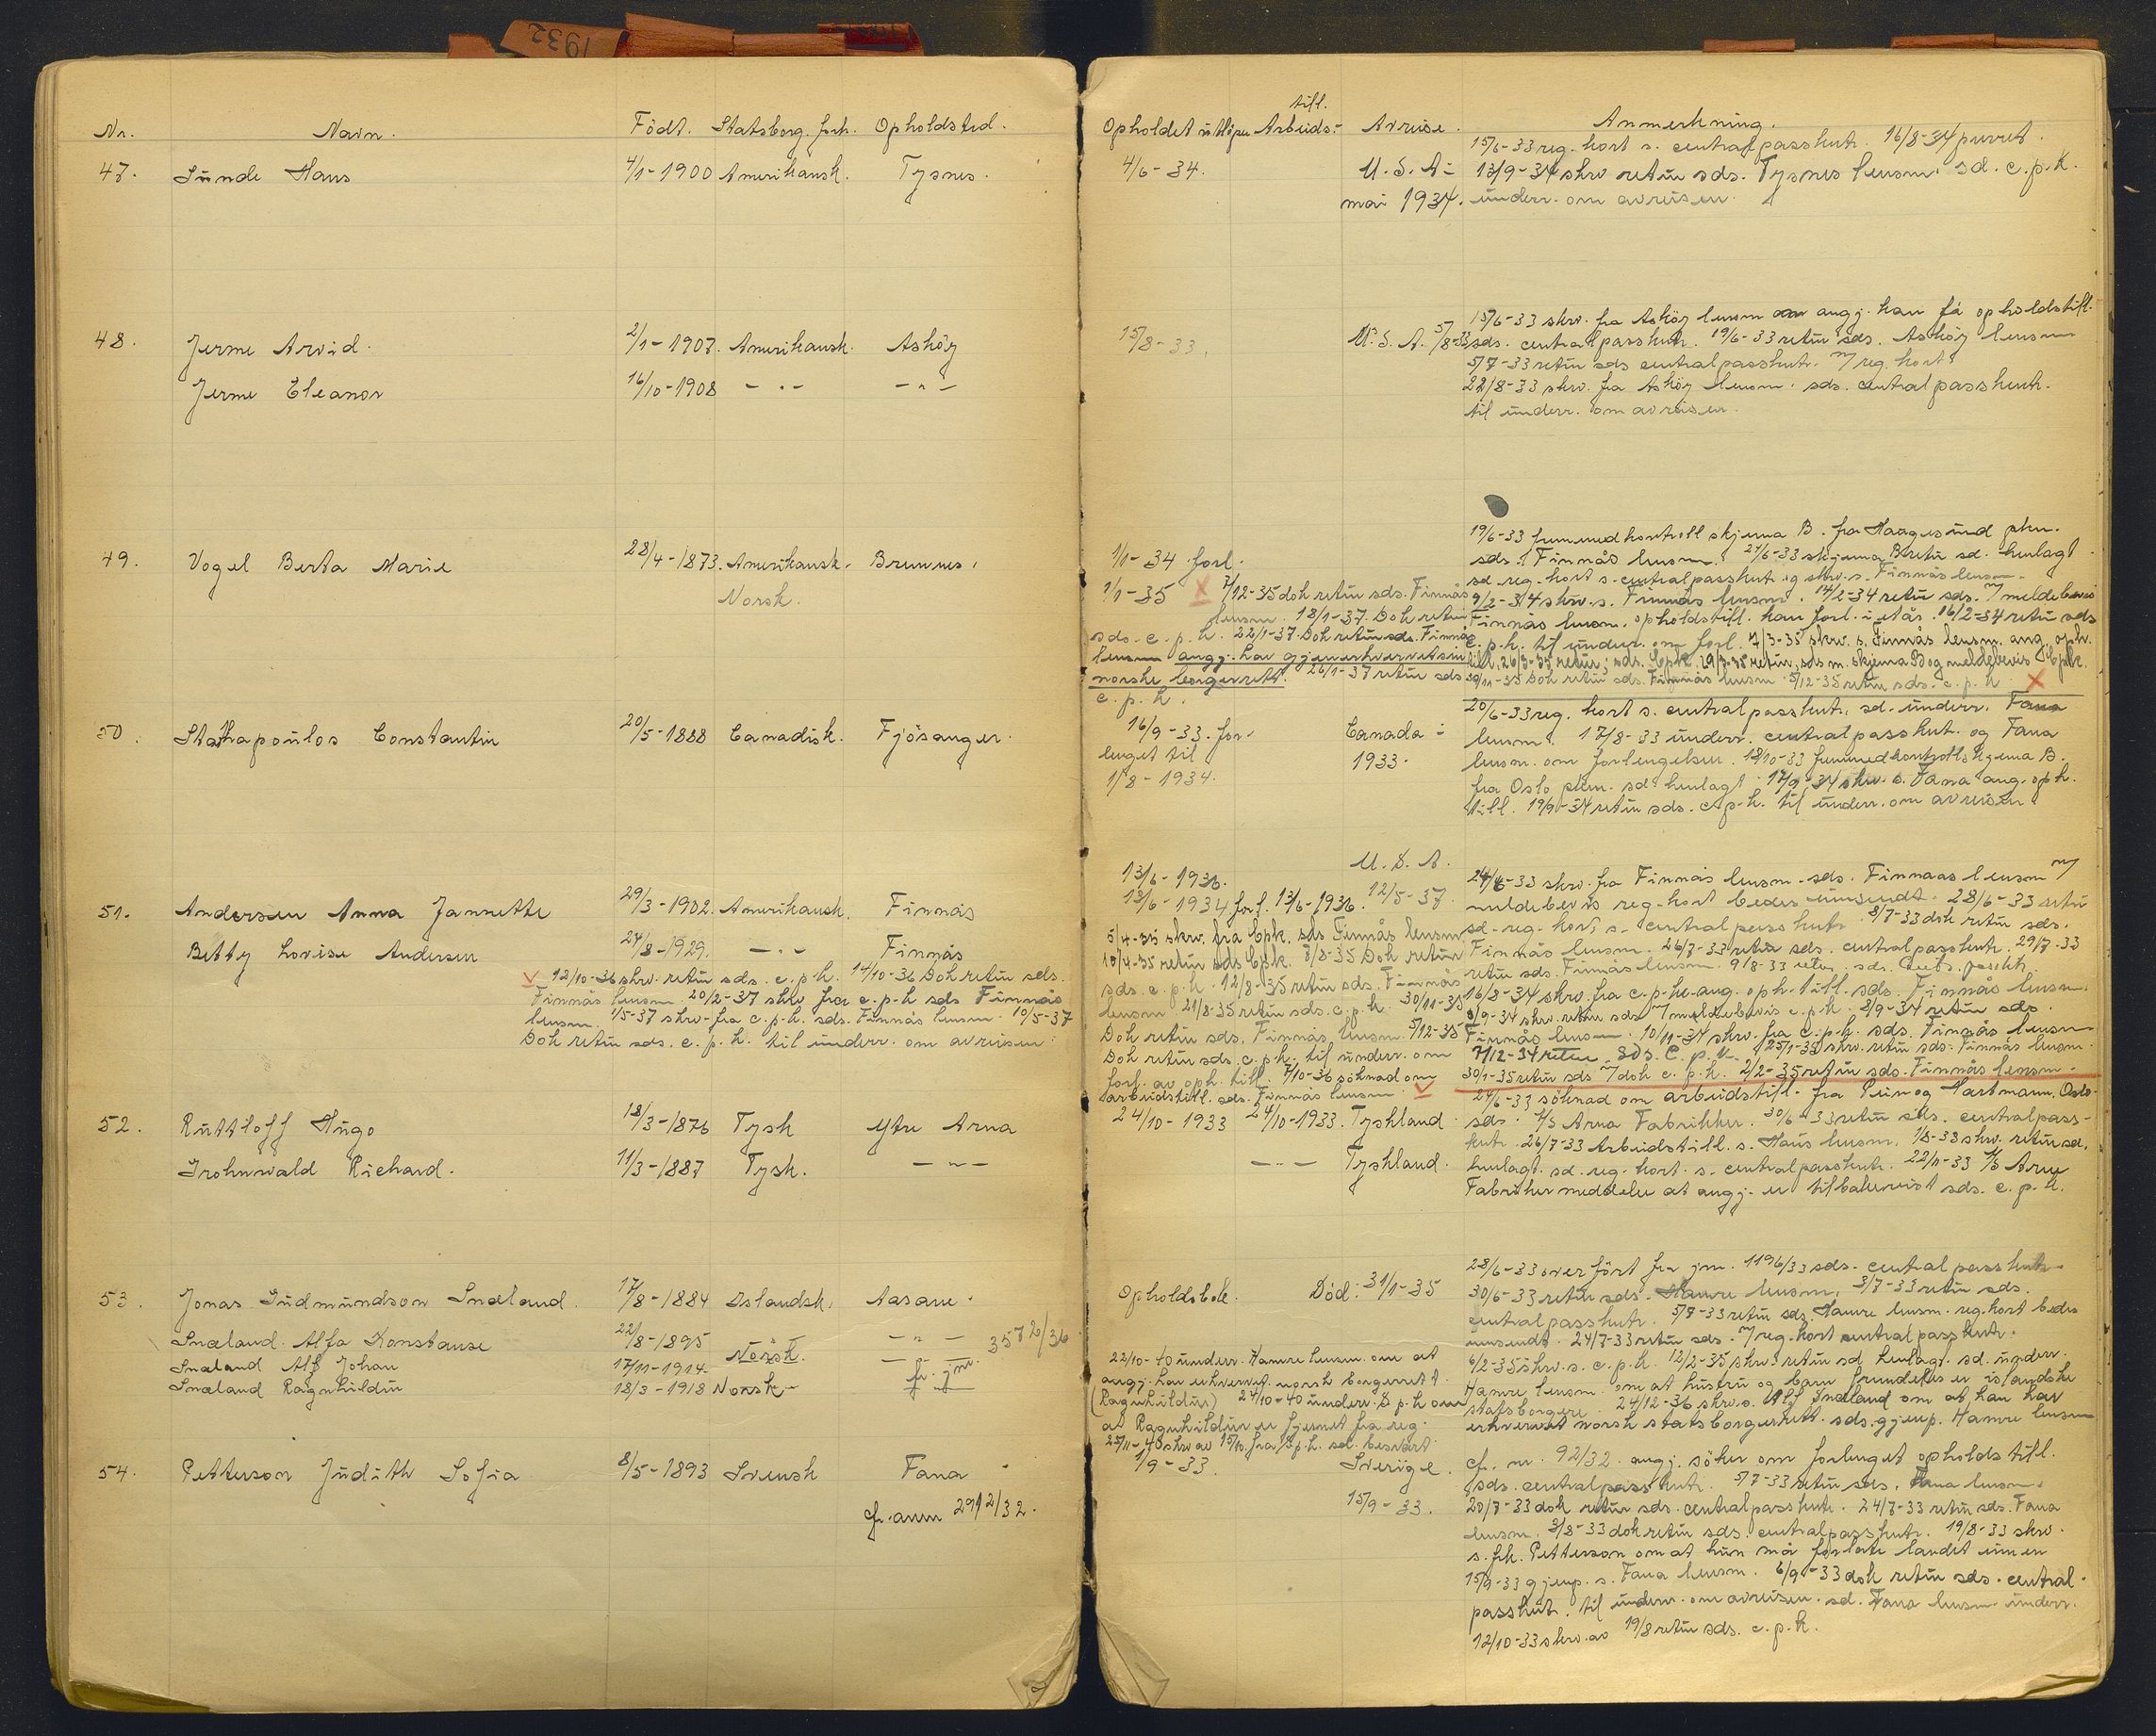 1932
Nr. Navn. Födt. Statsborg. forh. Opholdsted.
47. Sunde Hans 4/1-1900 Amerikansk. Tysnes.
48. Jerme Arvid. 2/1-1907. Amerikansk. Asköy
Jerme Eleanor 16/10-1908 - " - - " -
49. Vogel Berta Marie 28/4-1873. Amerikansk. Bremnes.
Norsk.
50. Stathapoulos Constantin 20/5-1888 Canadisk. Fjösanger.
51. Andersen Anna Jannette 29/3-1902. Amerikansk. Finnås
Betty Lovise Andersen 24/8-1929. - " - Finnås
V 12/10-36 skrv. retur sds. c.p.k. 14/10-36 Dok retur sds.
Finnås lensm. 20/2-37 skrv fra c.p.k sds Finnås
lensm. 1/5-37 skrv. fra c.p.k. sds. Finnås lensm. 10/5-37
Dok retur sds. c.p.k. til underr. om avreisen.
52. Ruttloff Hugo 18/3-1876 Tysk Ytre Arna
Irohnwald Richard. 11/3-1887 Tysk. - " -
53. Jonas Gudmundson Snæland. 17/8-1884 Islandsk. Aasane.
Snæland Alfa Konstanse 22/8-1895 - " - 3572/36
Snæland Alf Johan 17/11-1914 Norsk. fr. jnr.
Snæland Ragnhildur 18/3-1918 Norsk - " -
54. Petterson Judith Sofia 8/5-1893 Svensk Fana
cfr. anm 2912/32.
till.
Opholdet utlöper Arbeids- Avreise. Anmerkning.
15/6-33 reg. kort s. centralpasskntr. 16/8-34 purret.
4/6-34. U.S.A. 13/9-34 skrv retur sds. Tysnes lensm. sd. c.p.k.
mai 1934. underr. om avreisen.
15/6-33 skrv. fra Asköy lensm om angj. kan få opholdstill.
15/8-33. U.S.A. 5/8-33 sds. centralpasskntr. 19/6-33 retur sds. Asköy lensm
5/7-33 retur sds centralpasskntr. m/ reg. kort
22/8-33 skrv. fra Asköy lensm. sds. centralpasskntr.
til underr. om avreisen.
19/6-33 fremmedkontroll skjema B. fra Haugesund pkm.
1/1-34 forl. sds. Finnås lensm. 27/6-33 skjema B retur sd. henlagt
sd reg. kort s. centralpasskntr. og skrv. s. Finnås lensm.
1/1-35 X 7/12-35 dok retur sds. Finnås 9/2-34 skrv. s. Finnås lensm. 14/2-34 retur sds. m/ meldebevis
lensm. 18/1-37. Dok retur Finnås lensm. opholdstill. kan forl. i et år. 16/2-34 retur sds
sds. c.p.k. 22/1-37. Dok retur sds. Finnås c.p.k. til underr. om forl. 7/3-35 skrv. s. Finnås lensm. ang. oph.
lensm angj. har gjenerhvervet sin till. 26/3-35 retur sds. Cpk. 29/3-35 retur sds m. skjema B og meldebevis Cpk.
norske borgerrett. 26/1-37 retur sds 30/11-35 Dok retur sds. Finnås lensm. 5/12-35 retur sds. c.p.k X
c.p.k.
20/6-33 reg. kort s. centralpasskntr. sd. underr. Fana
16/9-33. for- Canada lensm. 17/8-33 underr. centralpasskntr. og Fana
lenget til 1933. lensm. om forlengelsen. 18/10-33 fremmedkontrollskjema B.
1/8-1934. fra Oslo pkm. sd. henlagt. 17/9-34 skrv. s. Fana ang. oph.
till. 19/9-34 retur sds. c.p.k. til underr. om avreisen.
13/6-1936. U.S.A. 24/6-33 skrv. fra Finnås lensm. sds. Finnaas lensm m/
13/6-1934 forl. 13/6-1936. 12/5-37. meldebevis reg-kort bedes innsendt. 28/6-33 retur
5/4-35 skrv. fra Cpk. sds Finnås lensm. sd. reg. kort s. centralpasskntr. 8/7-33 dok retur sds.
10/4-35 retur sds Cpk. 8/8-35 Dok retur Finnås lensm. 26/7-33 retur sds. centralpasskntr. 29/7-33
sds. c.p.k. 12/8-35 retur sds. Finnås retur sds. Finnås lensm. 9/8-33 retur sds. Centr. passktr.
lensm. 21/8-35 retur sds. c.p.k. 30/11-35 16/8-34 skrv. fra c.p.k. ang. oph. till. sds. Finnås lensm.
Dok retur sds. Finnås lensm. 5/12-35 3/9-34 skrv. retur sds m/ meldebevis c.p.k. 8/9-34 retur sds.
Dok retur sds. c.p.k. til underr. om Finnås lensm. 10/11-34 skrv. fra c.p.k. sds. Finnås lensm
forl. av oph. till. 7/10-36 söknad om 7/12-34 retur sds. C.p.k. 25/1-35 skrv. retur sds. Finnås lensm.
arbeidstill. sds. Finnås lensm. V 30/1-35 retur sds m/ dok c.p.k. 2/2-35 retur sds. Finnås lensm.
24/6-33 söknad om arbeidstill. fra Pein og Hartmann, Oslo.
24/10-1933 24/10-1933. Tyskland. sds. A/S Arna Fabrikker. 30/6-33 retur sds. centralpass-
kntr. 26/7-33 Arbeidstill. s. Haus lensm. 1/8-33 skrv. retur sd.
- " - Tyskland. henlagt. sd. reg. kort. s. centralpasskntr. 22/11-33 A/S Arne
Fabriker meddeler at angj. er tilbakereist sds. c.p.k.
28/6-33 overfört fra jnr. 1196/33 sds. centralpasskntr.
Opholdsbok. Död: 31/1-35 30/6-33 retur sds. Hamre lensm. 3/7-33 retur sds.
centralpasskntr. 5/7-33 retur sds. Hamre lensm. reg. kort bedes
innsendt. 24/7-33 retur sds. m/ reg. kort centralpasskntr.
22/10-40 underr. Hamre lensm. om at 6/2-35 skrv. s. c.p.k. 12/2-35 skrv. retur sd henlagt. sd. underr.
angj. har erhvervet norsk borgerrett. Hamre lensm. om at hustru og barn fremdeles er islandske
(Ragnhildur) 24/10-40 underr. S.p.k om statsborgere. 24/12-36 skrv. s. Alf Snæland om at han har
at Ragnhildur er fjernet fra reg. erhvervet norsk statsborgerrett. sds. gjenp. Hamre lensm
25/11-40 skrv av 15/10. fra S.p.k. sd. besvart.
1/9-33. Sverige. cfr. nr. 92/32. angj. söker om forlenget opholdstill.
15/9-33. sds. centralpasskntr. 5/7-33 retur sds. Fana lensm.
20/7-33 dok retur sds. centralpasskntr. 24/7-33 retur sds. Fana
lensm. 3/8-33 dok retur sds. centralpasskntr. 19/8-33 skrv.
s. frk. Petterson om at hun må forlate landet innen
15/9-33 gjenp. s. Fana lensm. 6/9-33 dok retur sds. central-
passkntr. til underr. om avreisen. sd. Fana lensm. underr.
12/10-33 skrv. av 19/8 retur sds. c.p.k.